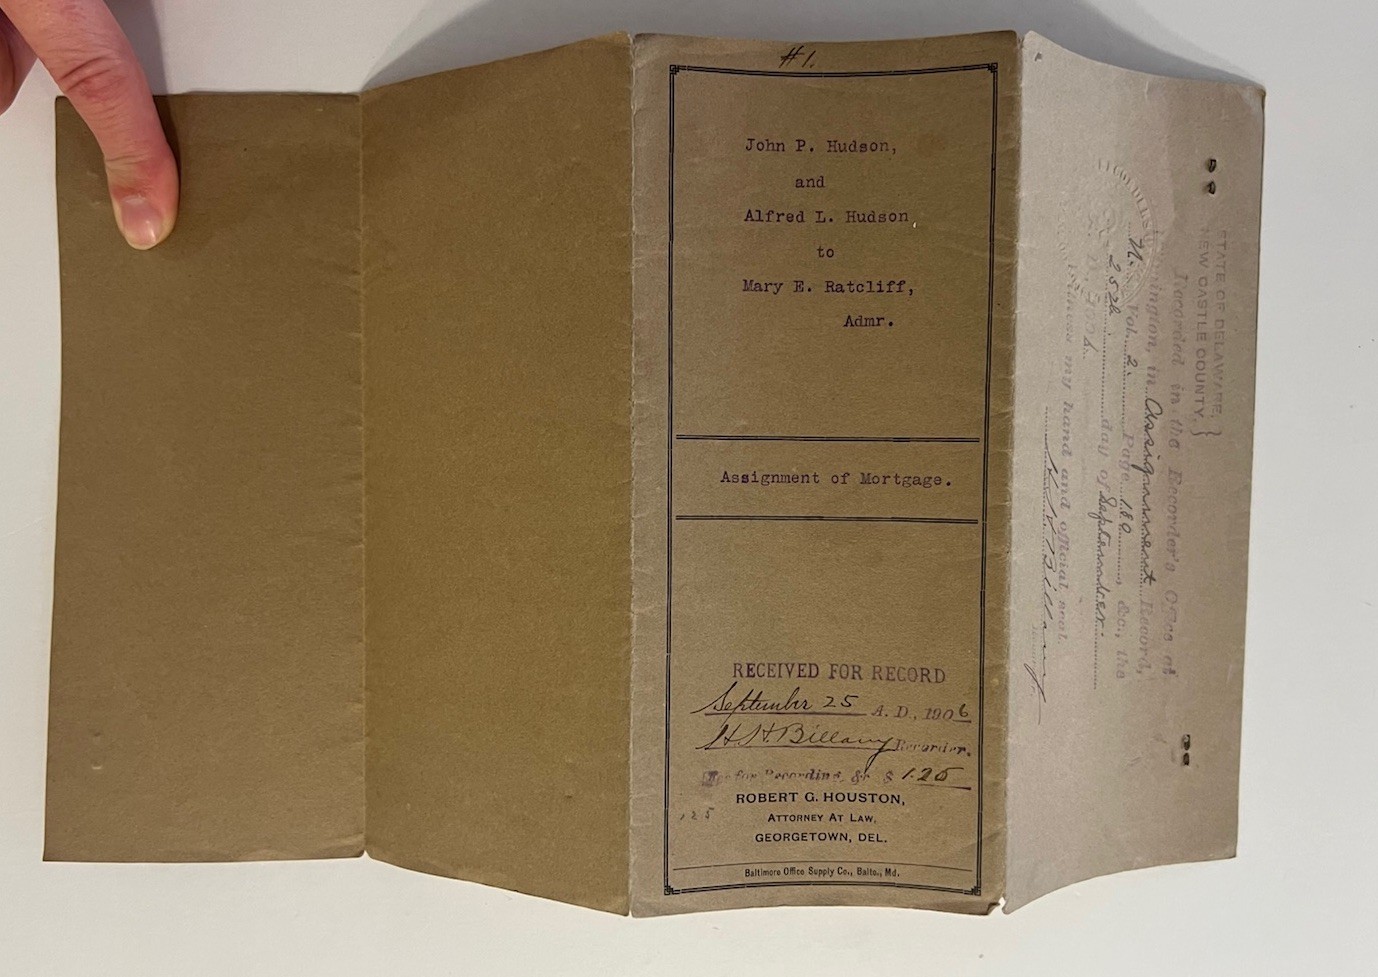 #1.
John P. Hudson,
and
Alfred L. Hudson
to
Mary E. Ratcliff,
Admr.
Assignment of Mortgage.
RECEIVED FOR RECORD
September 25 A. D., 1906
H. H. Billany Recorder.
for Recording, &c $ 1.25
125
ROBERT G. HOUSTON,
ATTORNEY AT LAW,
GEORGETOWN, DEL.
Baltimore Office Supply Co., Balto., Md.
STATE OF DELAWARE, }
NEW CASTLE COUNTY. }
Recorded in the Recorder's Office at
Wilmington, in Assignment Record,
Vol. 2. Page 180 &c., the
25th day of September
A. D. 1906.
Witness my hand and official seal.
Billany